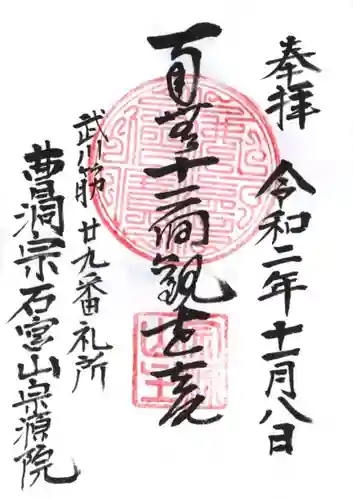 奉拝
令和二年十一月八日
百廿十二洞観世音
武川筋 廿九番礼所
曹洞宗石宮山宗源院